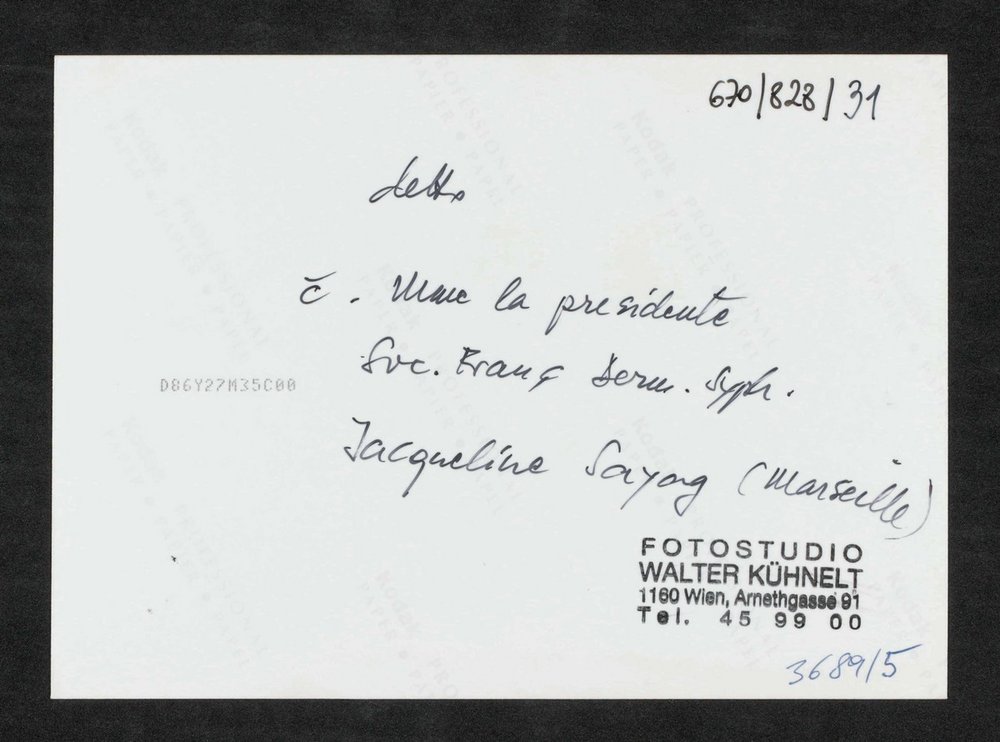 670/828/31
detto
č. Mme la presidente
Soc. Franç Derm. Syph.
D86Y27M35C00
Jacqueline Sayag (Marseille)
FOTOSTUDIO
WALTER KÜHNELT
1160 Wien, Arnethgasse 91
Tel. 45 99 00
3689/5